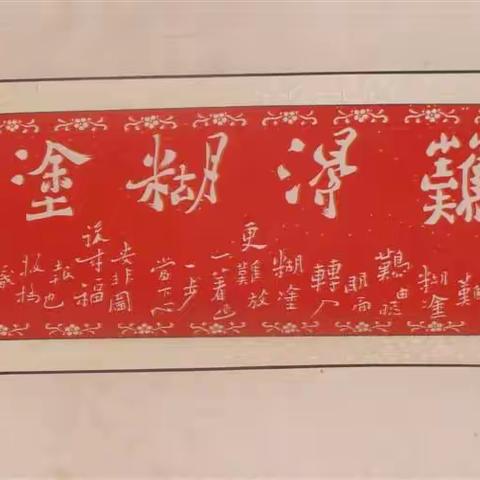 難得糊塗
難
糊塗
難由聰
明而
轉入
糊塗
更難放
一著退
一步
當下心
安非圖
後来福
報也
板橋